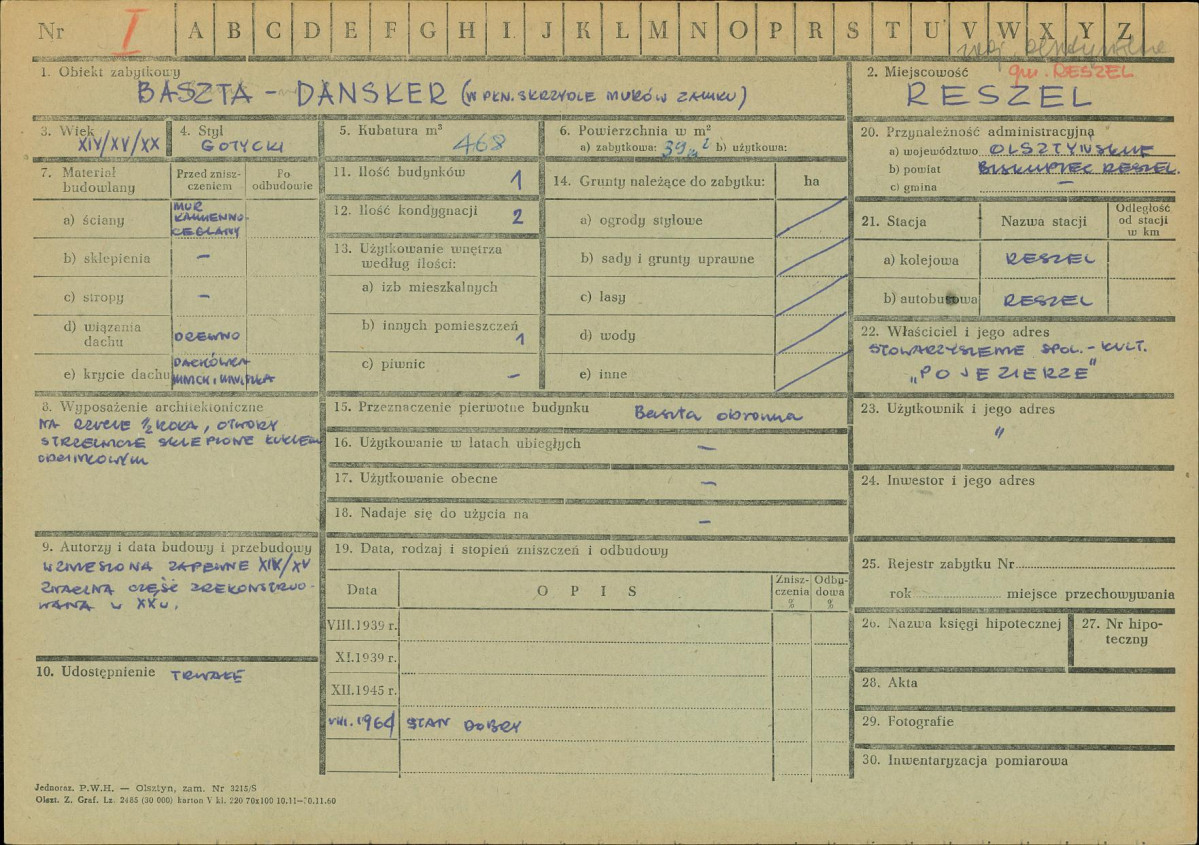 Nr I A B C D E F G H I J K L M N O P R S T U V W X Y Z
woj. olsztyńskie
1. Obiekt zabytkowy
BASZTA - DANSKER (W PŁN. SKRZYDLE MURÓW ZAMKU)
2. Miejscowość
gm. RESZEL
RESZEL
3. Wiek
XIV/XV/XX
4. Styl
GOTYCKI
5. Kubatura m³
468
6. Powierzchnia w m²
a) zabytkowa: 39 m² b) użytkowa:
20. Przynależność administracyjna
a) województwo OLSZTYŃSKIE
b) powiat BISKUPIEC RESZEL.
c) gmina —
7. Materiał budowlany
Przed zniszczeniem
Po odbudowie
a) ściany MUR KAMIENNO-CEGLANY
b) sklepienia –
c) stropy –
d) wiązania dachu DREWNO
e) krycie dachu DACHÓWKA MNICH I MNISZKA
11. Ilość budynków 1
12. Ilość kondygnacji 2
13. Użytkowanie wnętrza
według ilości:
a) izb mieszkalnych
b) innych pomieszczeń 1
c) piwnic –
14. Grunty należące do zabytku: ha
a) ogrody stylowe
b) sady i grunty uprawne
c) lasy
d) wody
e) inne
21. Stacja Nazwa stacji Odległość od stacji w km
a) kolejowa RESZEL
b) autobusowa RESZEL
22. Właściciel i jego adres
STOWARZYSZENIE SPOŁ.-KULT.
"POJEZIERZE"
8. Wyposażenie architektoniczne
NA RZUCIE ½ KOŁA, OTWORY
STRZELNICZE SKLEPIONE ŁUKIEM
ODCINKOWYM
15. Przeznaczenie pierwotne budynku Baszta obronna
16. Użytkowanie w latach ubiegłych –
17. Użytkowanie obecne –
18. Nadaje się do użycia na –
23. Użytkownik i jego adres
"
24. Inwestor i jego adres
9. Autorzy i data budowy i przebudowy
WZNIESIONA ZAPEWNE XIV/XV
ZNACZNA CZĘŚĆ ZREKONSTRUO-
WANA W XX w.
10. Udostępnienie TRWAŁE
19. Data, rodzaj i stopień zniszczeń i odbudowy
Data OPIS Zniszczenia % Odbudowa %
VIII.1939 r.
XI.1939 r.
XII.1945 r.
VIII.1964 STAN DOBRY
25. Rejestr zabytku Nr
rok miejsce przechowywania
26. Nazwa księgi hipotecznej
27. Nr hipoteczny
28. Akta
29. Fotografie
30. Inwentaryzacja pomiarowa
Jednoraz. P.W.H. — Olsztyn, zam. Nr 3215/S
Olszt. Z. Graf. Lz. 2485 (30 000) karton V kl. 220 70x100 10.11—10.11.60